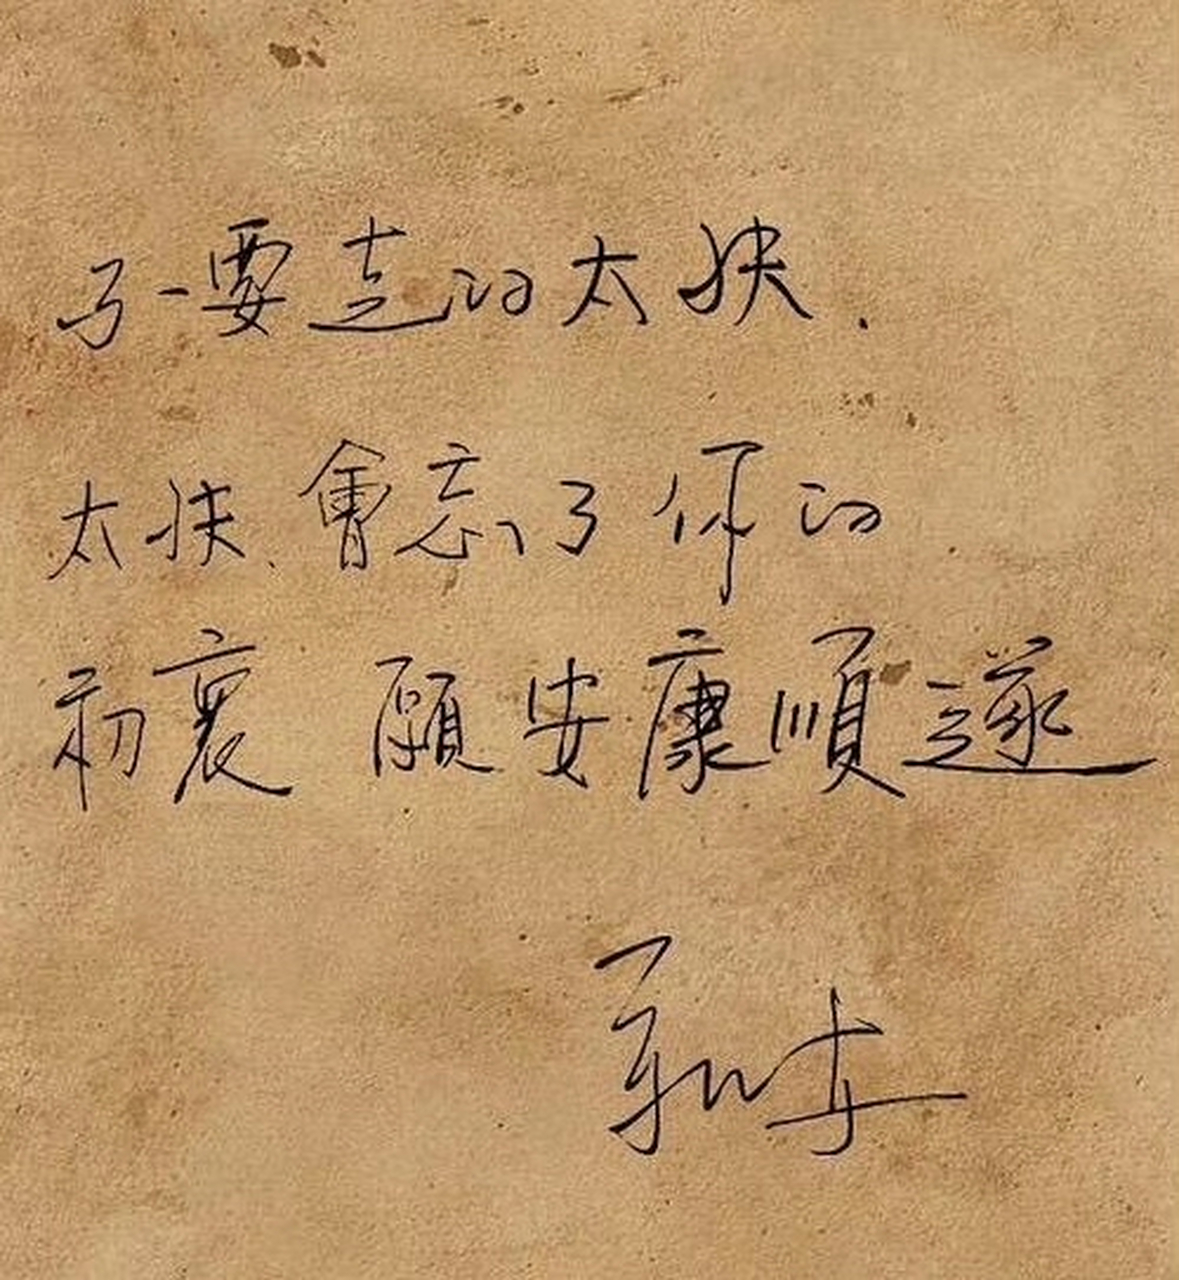 不要走的太快.
太快、會忘了你的
初衷 願安康順遂